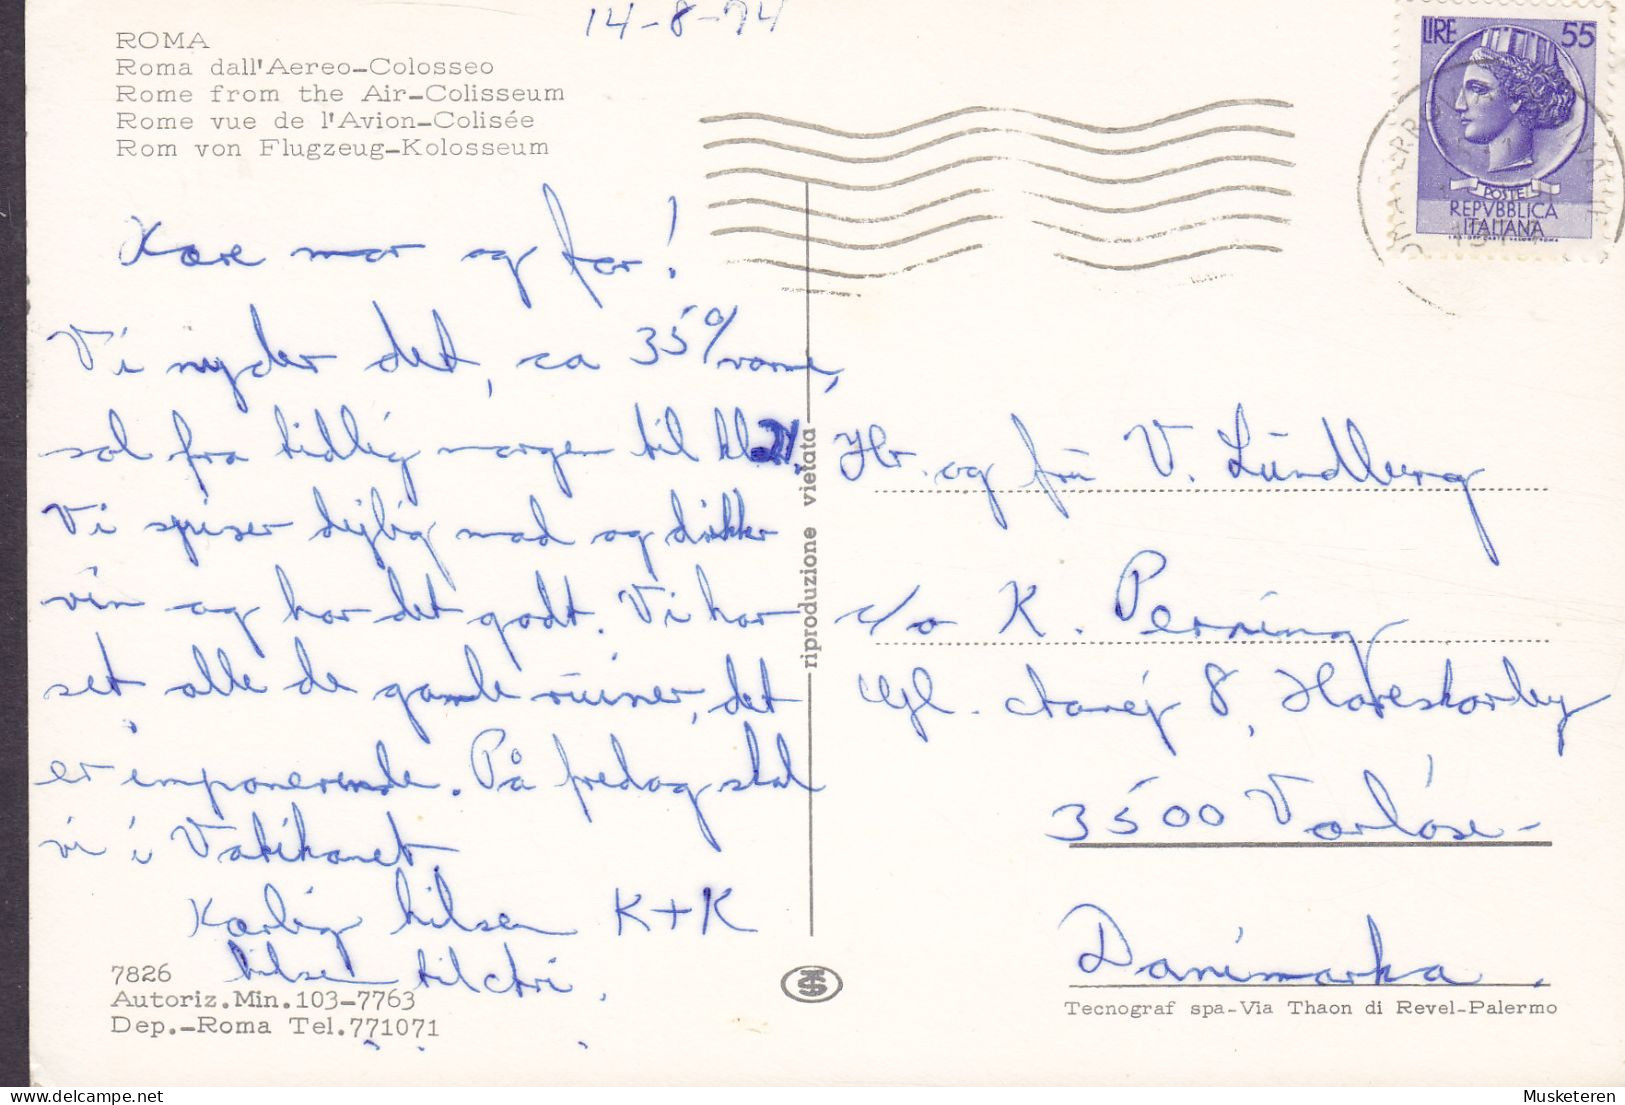 14-8-74
ROMA
Roma dall'Aereo-Colosseo
Rome from the Air-Colisseum
Rome vue de l'Avion-Colisée
Rom von Flugzeug-Kolosseum
LIRE 55
POSTE
REPVBBLICA
ITALIANA
Kære mor og far!
Vi nyder det, ca 35° varme,
sol fra tidlig morgen til kl 21.
Vi spiser dejlig mad og drikker
vin og har det godt. Vi har
set alle de gamle ruiner, det
er imponerende. På fredag skal
vi i Vatikanet.
Kærlig hilsen K+K
hilsen til
riproduzione vietata
Hr. og fru V. Lundberg
c/o K. Perning
Gl. 8, Hareskovby
3500 Værløse-
Danimarka.
7826
Autoriz.Min.103-7763
Dep.-Roma Tel.771071
Tecnograf spa-Via Thaon di Revel-Palermo
Musketeren @ delcampe.net